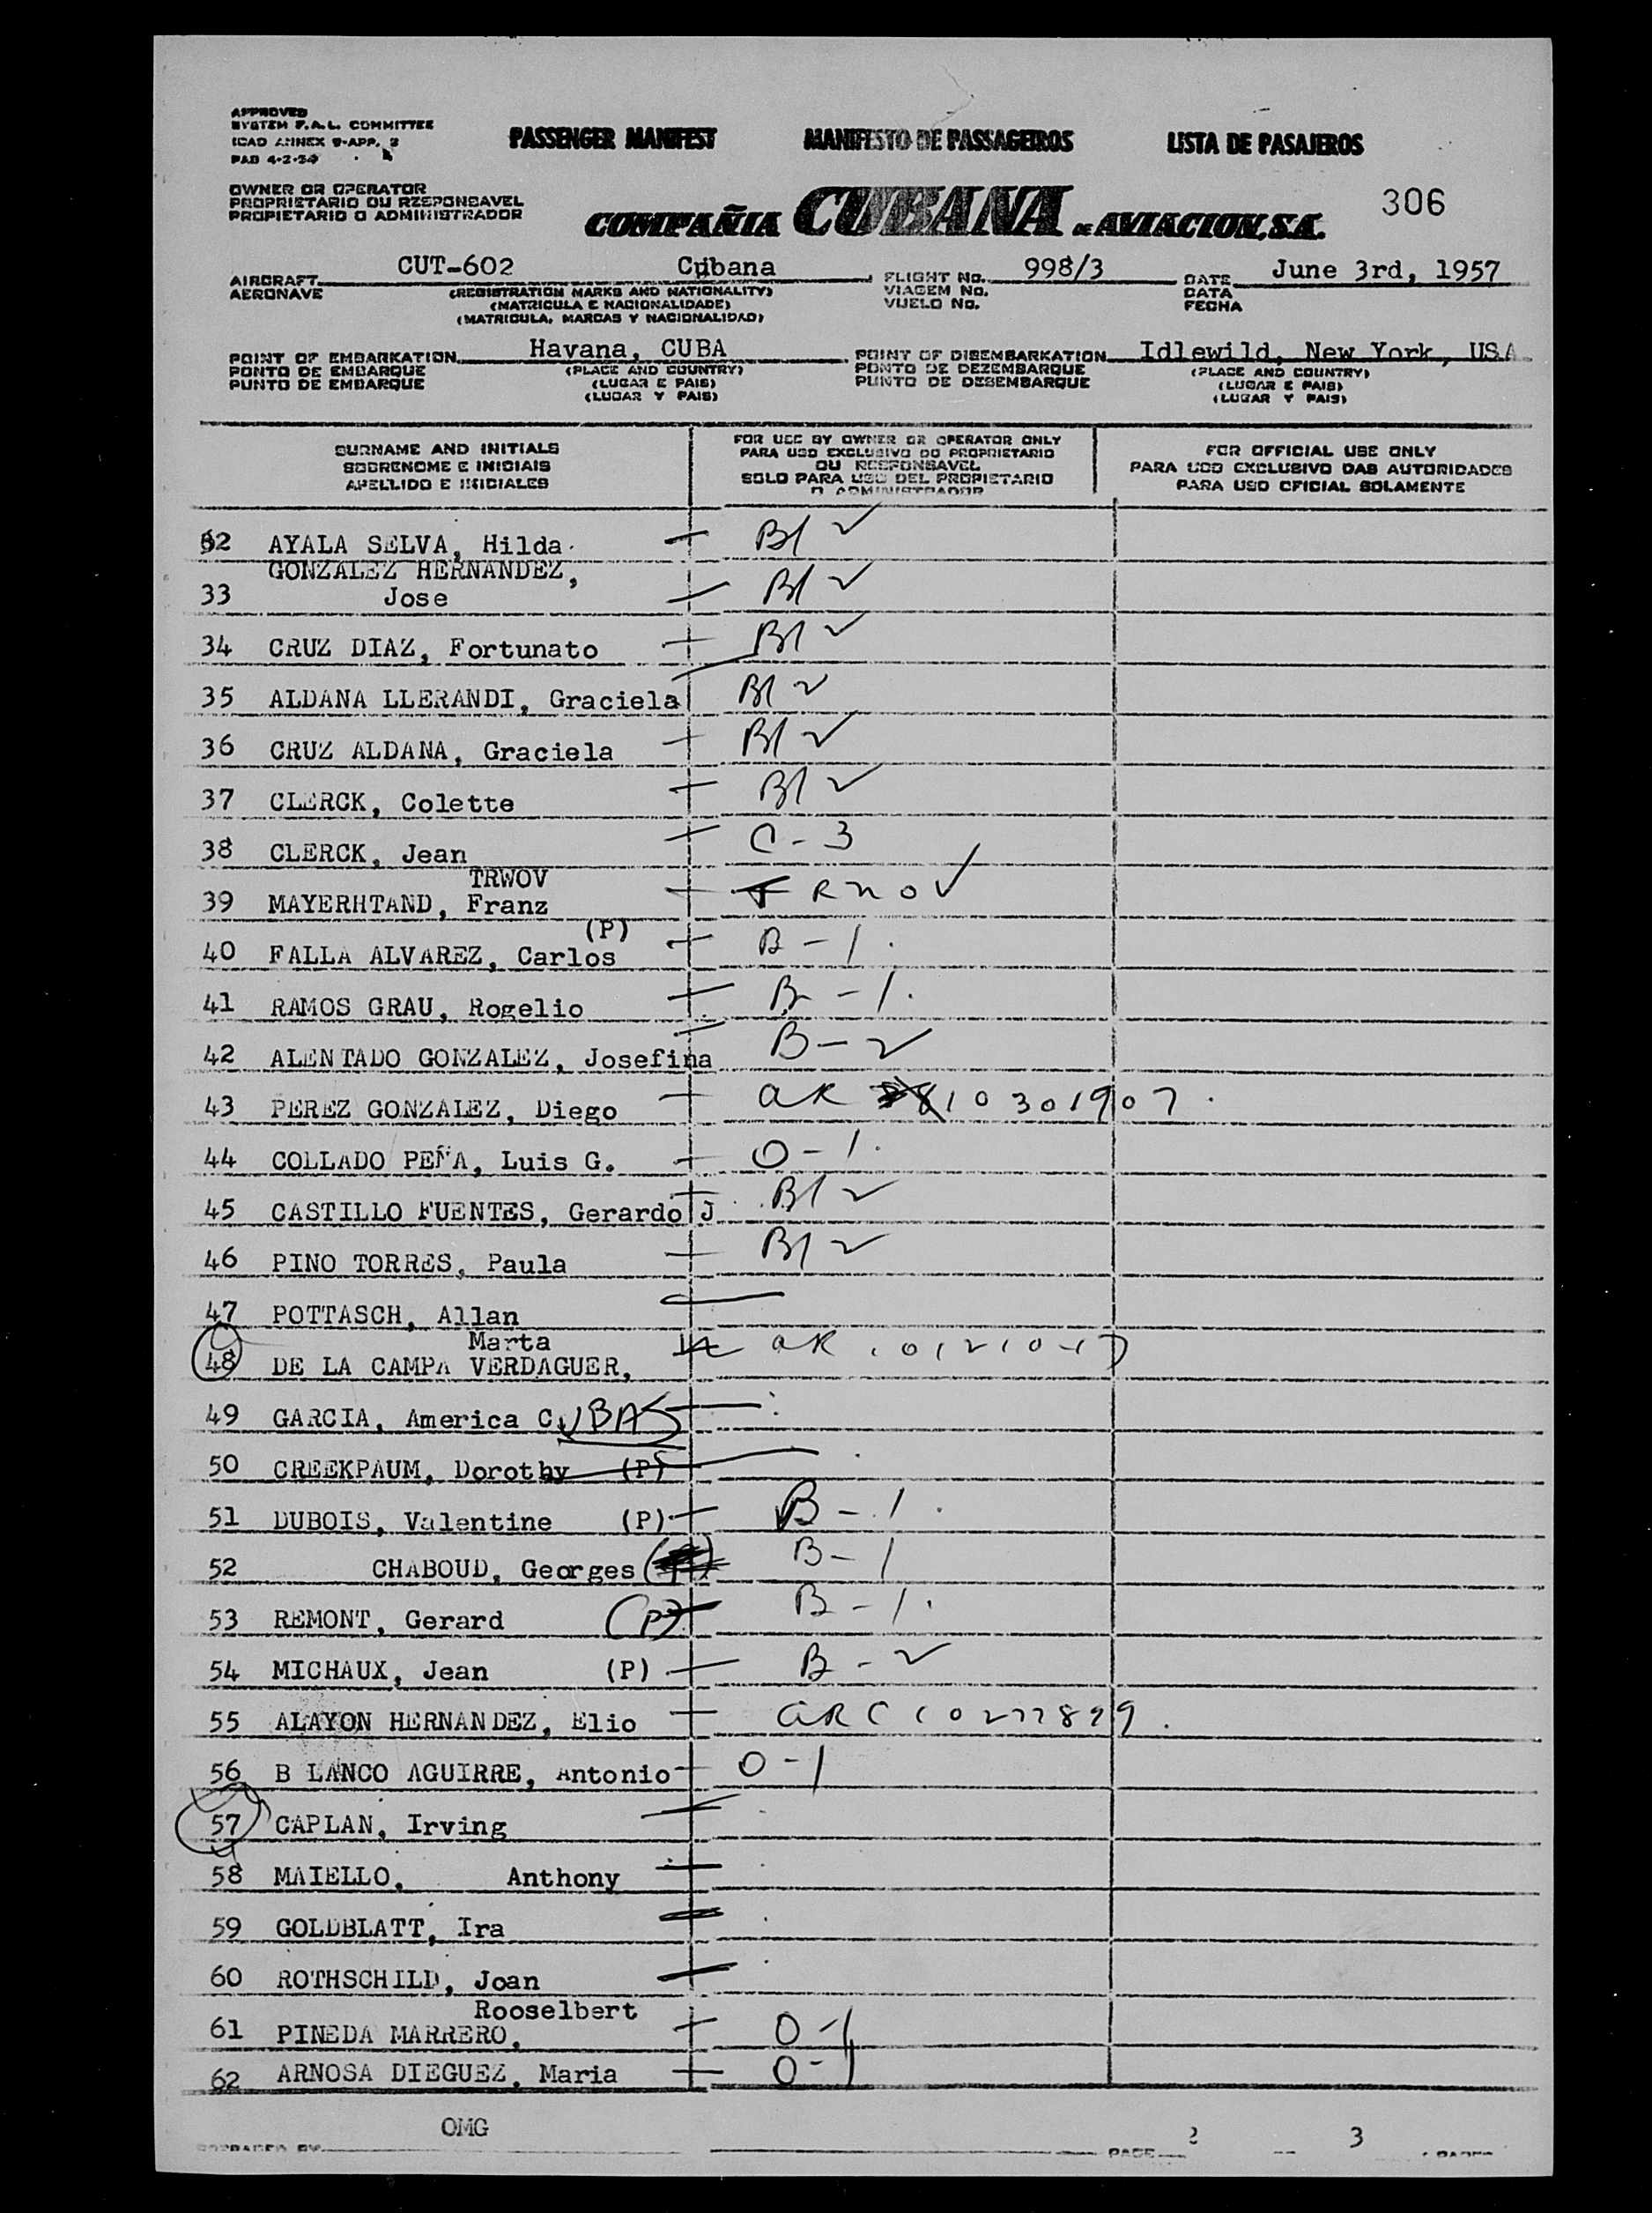 APPROVED
SYSTEM F.A.L. COMMITTEE
ICAO ANNEX 9-APP. 3
PAB 4-2-54
PASSENGER MANIFEST
MANIFESTO DE PASSAGEIROS
LISTA DE PASAJEROS
OWNER OR OPERATOR
PROPRIETARIO OU RESPONSAVEL
PROPIETARIO O ADMINISTRADOR
COMPAÑIA CUBANA DE AVIACION, S.A.
306
AIRCRAFT CUT-602 Cubana
AERONAVE
(REGISTRATION MARKS AND NATIONALITY)
(MATRICULA E NACIONALIDADE)
(MATRICULA, MARCAS Y NACIONALIDAD)
FLIGHT No. 998/3
VIAGEM No.
VUELO No.
DATE June 3rd, 1957
DATA
FECHA
POINT OF EMBARKATION Havana, CUBA
PONTO DE EMBARQUE
PUNTO DE EMBARQUE
(PLACE AND COUNTRY)
(LUGAR E PAIS)
(LUGAR Y PAIS)
POINT OF DISEMBARKATION Idlewild, New York, USA
PONTO DE DEZEMBARQUE
PUNTO DE DESEMBARQUE
(PLACE AND COUNTRY)
(LUGAR E PAIS)
(LUGAR Y PAIS)
SURNAME AND INITIALS
SOBRENOME E INICIAIS
APELLIDO E INICIALES
FOR USE BY OWNER OR OPERATOR ONLY
PARA USO EXCLUSIVO DO PROPRIETARIO
OU RESPONSAVEL
SOLO PARA USO DEL PROPIETARIO
O ADMINISTRADOR
FOR OFFICIAL USE ONLY
PARA USO EXCLUSIVO DAS AUTORIDADES
PARA USO OFICIAL SOLAMENTE
32 AYALA SELVA, Hilda B/2
GONZALEZ HERNANDEZ,
33 Jose B/2
34 CRUZ DIAZ, Fortunato B/2
35 ALDANA LLERANDI, Graciela B/2
36 CRUZ ALDANA, Graciela B/2
37 CLERCK, Colette B/2
38 CLERCK, Jean C-3
TRWOV
39 MAYERHTAND, Franz TRWOV
(P)
40 FALLA ALVAREZ, Carlos B-1
41 RAMOS GRAU, Rogelio B-1
42 ALENTADO GONZALEZ, Josefina B-2
43 PEREZ GONZALEZ, Diego AR 10301907
44 COLLADO PEÑA, Luis G. O-1
45 CASTILLO FUENTES, Gerardo J B/2
46 PINO TORRES, Paula B/2
47 POTTASCH, Allan
Marta
48 DE LA CAMPA VERDAGUER, AR
49 GARCIA, America CUBAS
50 CREEKPAUM, Dorothy (P)
51 DUBOIS, Valentine (P) B-1
52 CHABOUD, Georges B-1
53 REMONT, Gerard (P) B-1
54 MICHAUX, Jean (P) B-2
55 ALAYON HERNANDEZ, Elio ARC
56 B LANCO AGUIRRE, Antonio O-1
57 CAPLAN, Irving
58 MAIELLO, Anthony
59 GOLDBLATT, Ira
60 ROTHSCHILD, Joan
Rooselbert
61 PINEDA MARRERO, O-1
62 ARNOSA DIEGUEZ, Maria O-1
OMG
PREPARED BY
PAGE 2 3 PAGES